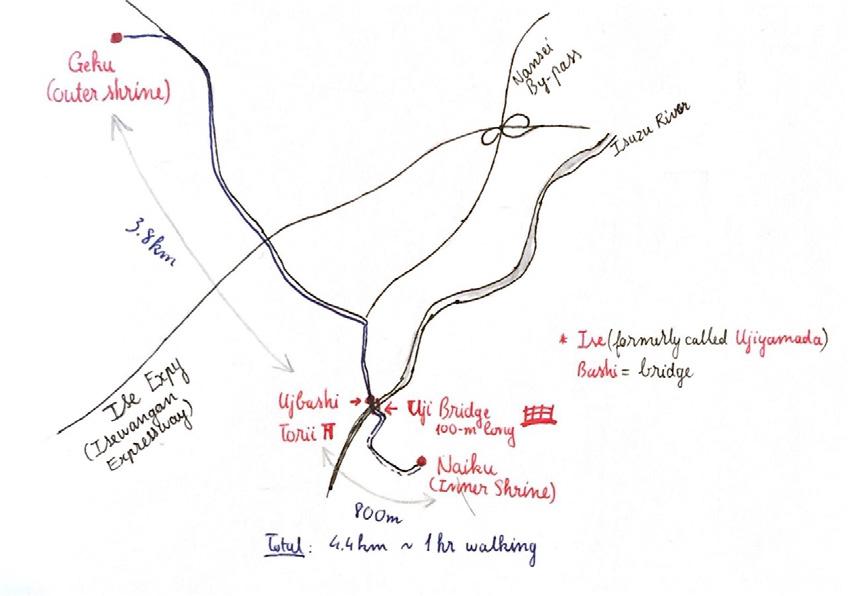 Geku
(outer shrine)
Nansei
By-pass
Isuzu River
3.8km
* Ise (formerly called Ujiyamada)
Bashi = bridge
Ise Expy
(Isewangan
Expressway)
Ujbashi
Torii
Uji Bridge
100-m long
Naiku
(Inner Shrine)
800m
Total: 4.4km ~ 1 hr walking